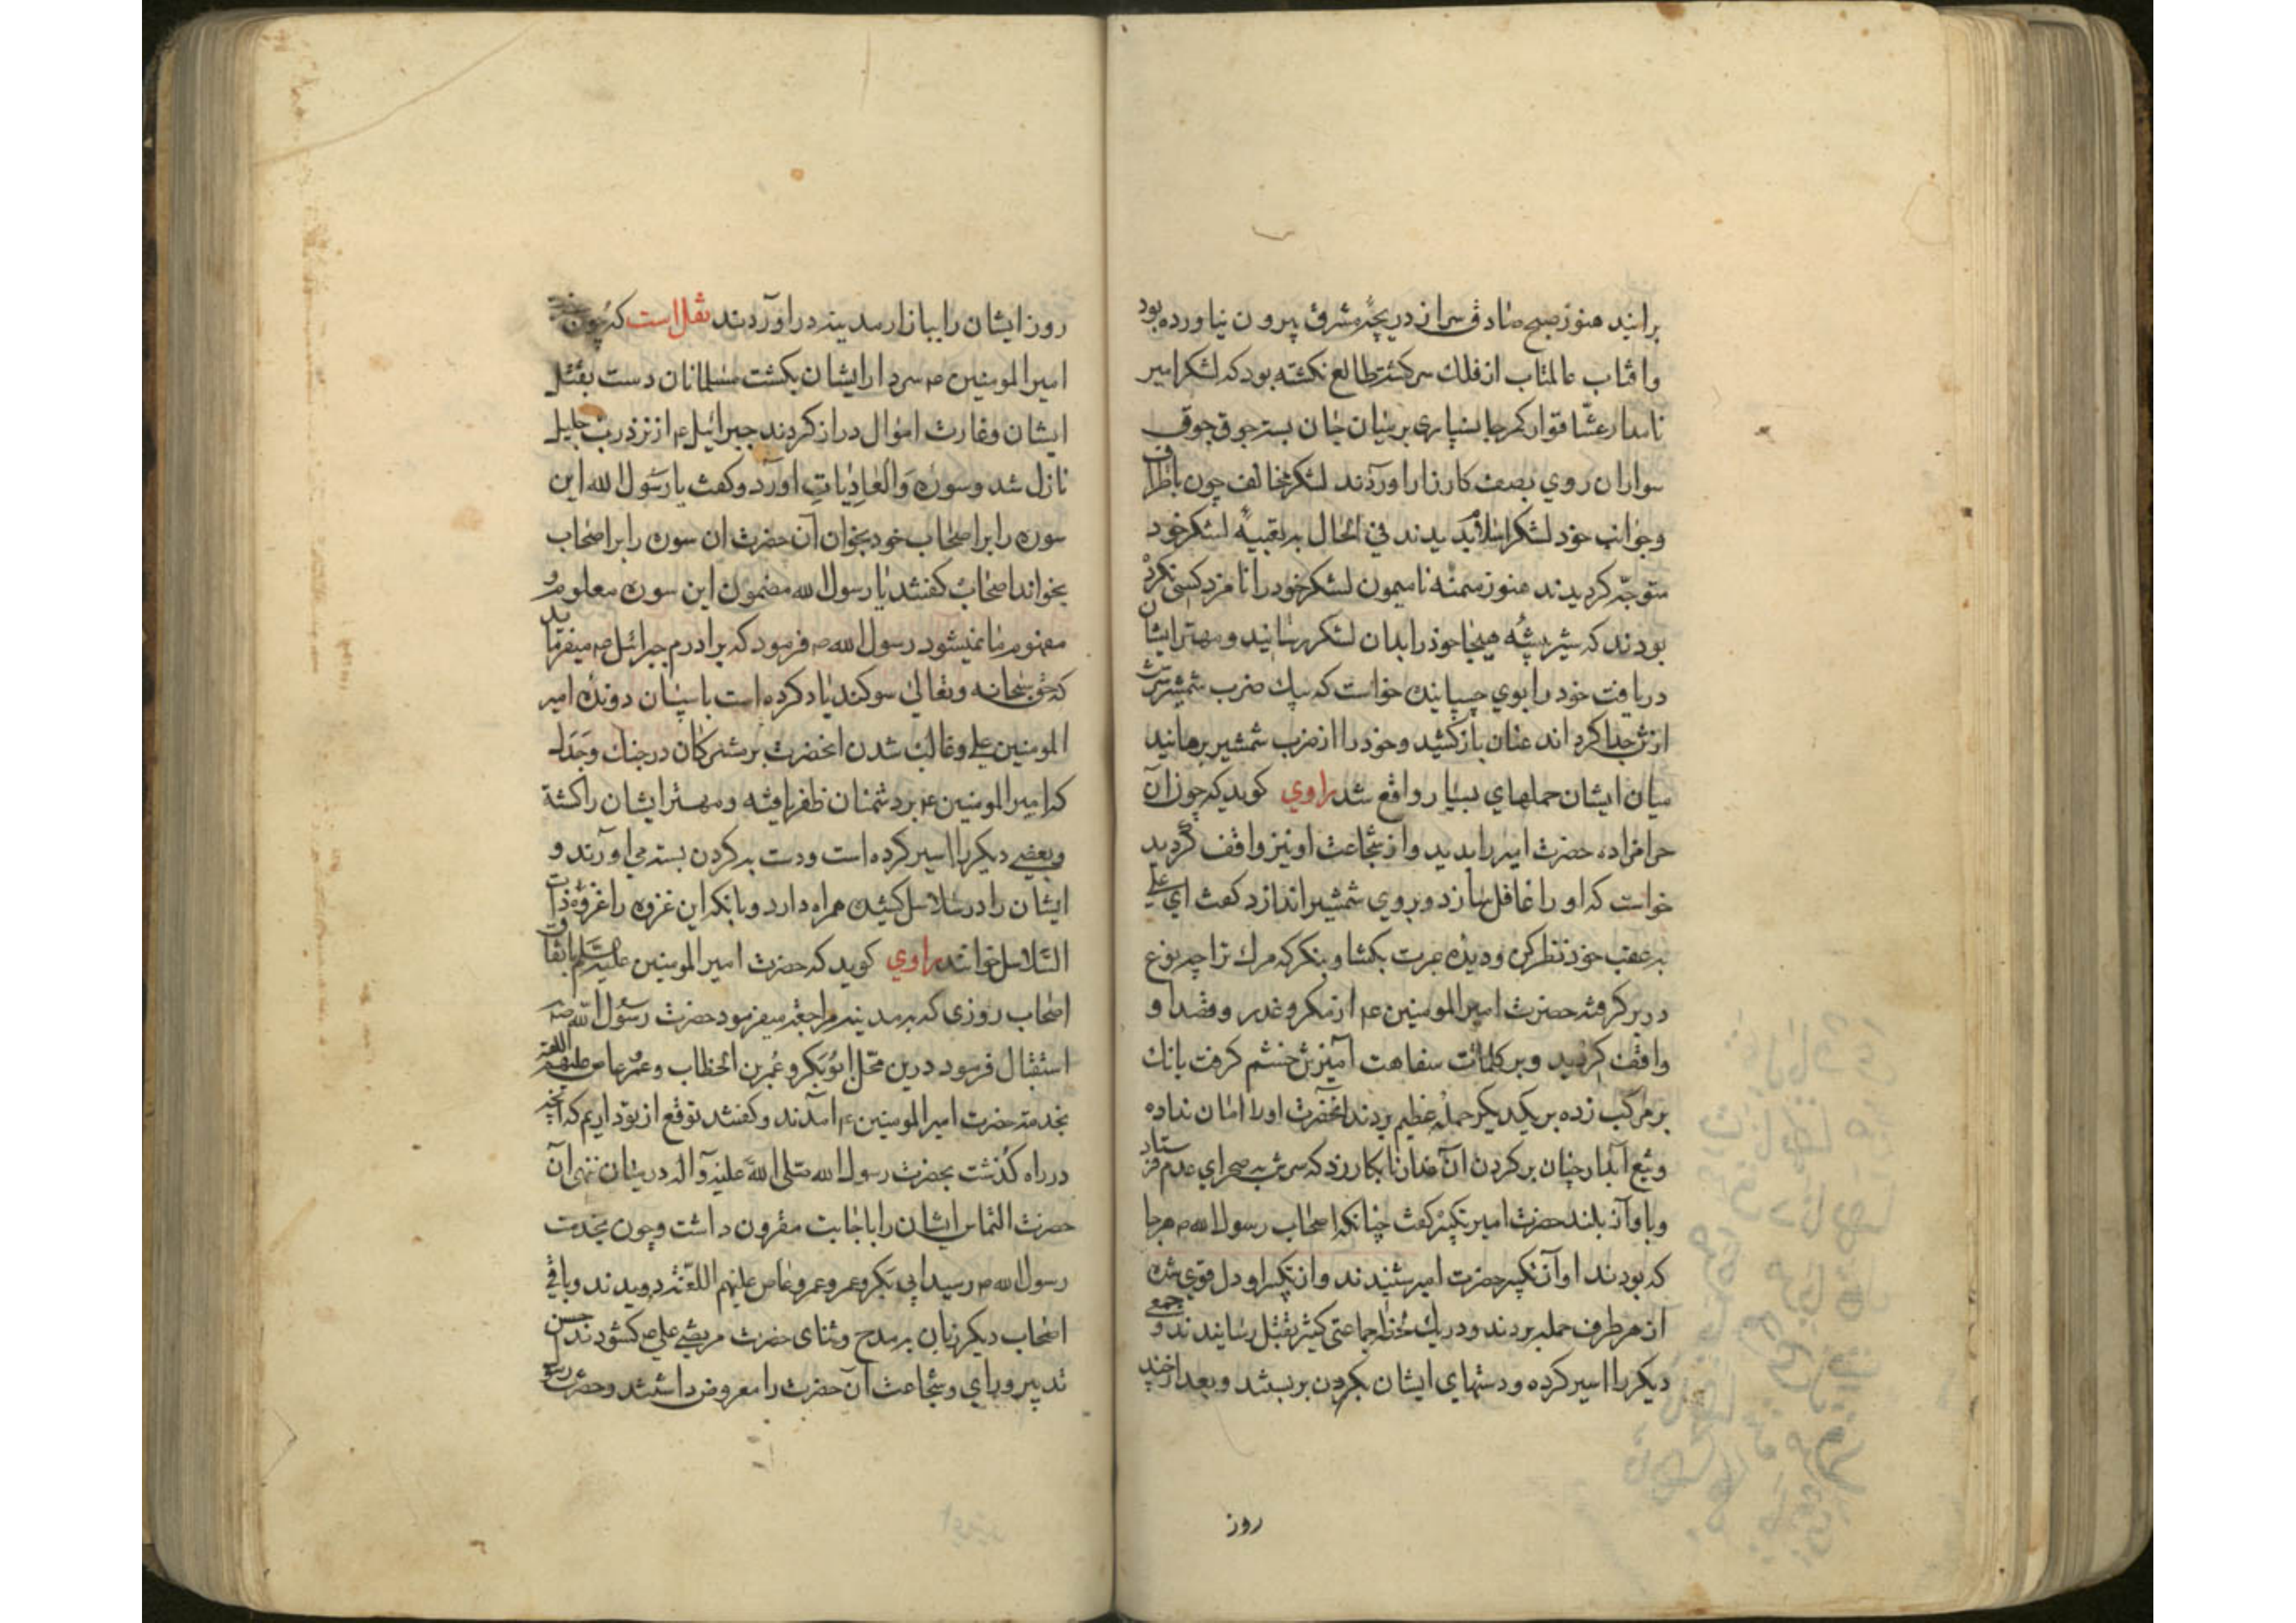 برانند هنوز صبح صادق سر از دریچهٔ مشرق بیرون نیاورده بود
وافتاب عالمتاب از فلك سرکشته طالع نکشته بود که لشکر امیر
نامدار کمر جانسپاری برمیان جان بسته جوق جوق
سواران روی بصف کارزار اوردند لشکر مخالف چون باطراف
وجوانب خود لشکر اسلام بدیدند فی الحال به تعبیهٔ لشکر خود
متوجه کردیدند هنوز میمنه نامیمون لشکر خود را نامزد کسی نکرده
بودند که شیر بیشه هیجا خود را بدان لشکر رسانید و مهتر ایشان
دریافت خود را بوی چسپانیده خواست که بیك ضرب شمشیر سرش
ازتن جدا کرداند عنان باز کشید و خود را از ضرب شمشیر برهانید
میان ایشان حملهای بسیار واقع شد راوی کوید که چون آن
حرامزاده حضرت امیر را بدید و از شجاعت او نیز واقف کردید
خواست که او را غافل سازد و بروی شمشیر اندازد کفت ای علی
به عقب خود نظر کن و دیده عبرت بکشا و بنکر که مرك ترا چه نوع
در بر کرفته حضرت امیر المومنین ع از مکر و غدر و قصد او
واقف کردید و بر کلمات سفاهت آمیزش خشم کرفت بانك
بر مرکب زده بر یکدیکر حملهٔ عظیم بردند آنحضرت او را امان نداده
و تیغ آبدار چنان بر کردن آن نابکار زد که سرش به صحرای عدم فرستاد
و باواز بلند حضرت امیر تکبیر کفت چنانکه اصحاب رسول الله ص هرجا
که بودند اواز تکبیر حضرت امیر شنیدند و از تکبیر او دل قوی شده
از هر طرف حمله بردند و در یك لحظه جماعتی کثیر بقتل رسانیدند و جمعی
دیکر را اسیر کرده و دستهای ایشان بکردن بربستند و بعد از چند
روز
روز ایشان را ببازار مدینه در اوردند نقل است که چون
امیر المومنین ع سردار ایشان بکشت مسلمانان دست بقتل
ایشان و غارت اموال دراز کردند جبرائیل ع از نزد رب جلیل
نازل شد و سوره وَالْعَادِیَاتِ اورد و کفت یا رسول الله این
سوره را بر اصحاب خود بخوان آن حضرت ان سوره را بر اصحاب
بخواند اصحاب کفتند یا رسول الله مضمون این سوره معلوم و
مفهوم ما نمیشود رسول الله ص فرمود که برادرم جبرائیل ع میفرماید
که حق سبحانه وتعالی سوکند یاد کرده است باسپان دونده امیر
المومنین علی و غالب شدن انحضرت بر مشرکان در جنك و جدال
که امیر المومنین ع بر دشمنان ظفر یافته و مهتر ایشان را کشته
و بعضی دیکر را اسیر کرده است و دست به کردن بسته می اورند و
ایشان را در سلاسل کشیده همراه دارد و بانکه این غزوه را غزوهٔ ذات
السلاسل خوانند راوی کوید که حضرت امیر المومنین علیه السلم باتفاق
اصحاب روزی که به مدینه مراجعه میفرمود حضرت رسول الله ص
استقبال فرمود درین محل ابوبکر و عمر بن الخطاب و عمر عاص علیهم اللعنه
بخدمت حضرت امیر المومنین ع امدند و کفتند توقع از تو داریم که انچه
در راه کذشت بحضرت رسول الله صلی الله علیه وآله در میان ننهی آن
حضرت التماس ایشان را باجابت مقرون داشت و چون بخدمت
رسول الله ص رسید ابی بکر و عمر و عمرو عاص علیهم اللعنه دویدند و باقی
اصحاب دیکر زبان به مدح و ثنای حضرت مرتضی علی ع کشودند حسن
تدبیر و رای و شجاعت آن حضرت را معروض داشتند و حضرت رسول